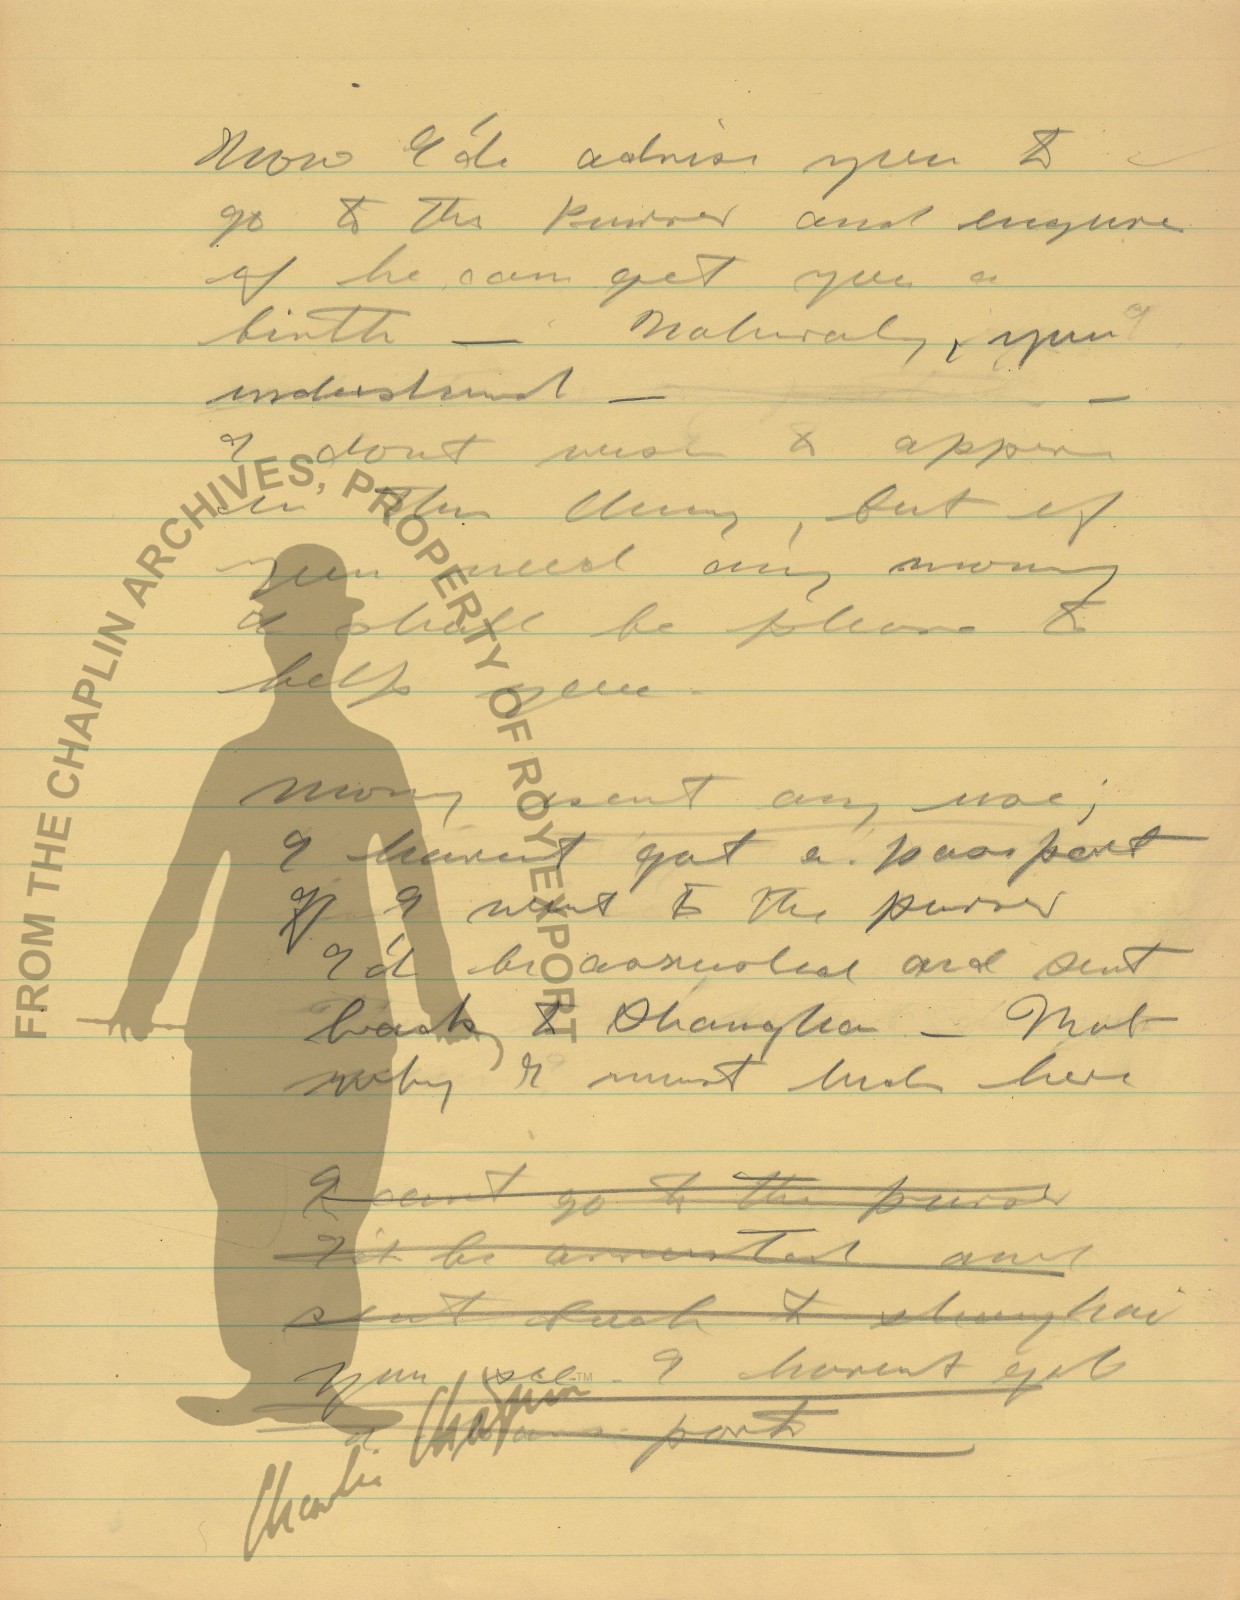 Now I'd advise you to
go to the Purser and enqure
if he can get you a
birth — Naturaly, you
understand — —
I dont wish to appear
in this thing, but if
you need any mony
I shall be please to
help you.
Mony isent any use;
I havent got a passport
If I went to the purser
I'd be and sent
back to Shanghai —
why I must hide here
I cant go to the purser
be arrested and
sent back to shanghai
you see. I havent got
a pass port
FROM THE CHAPLIN ARCHIVES, PROPERTY OF ROY EXPORT
Charlie Chaplin ™